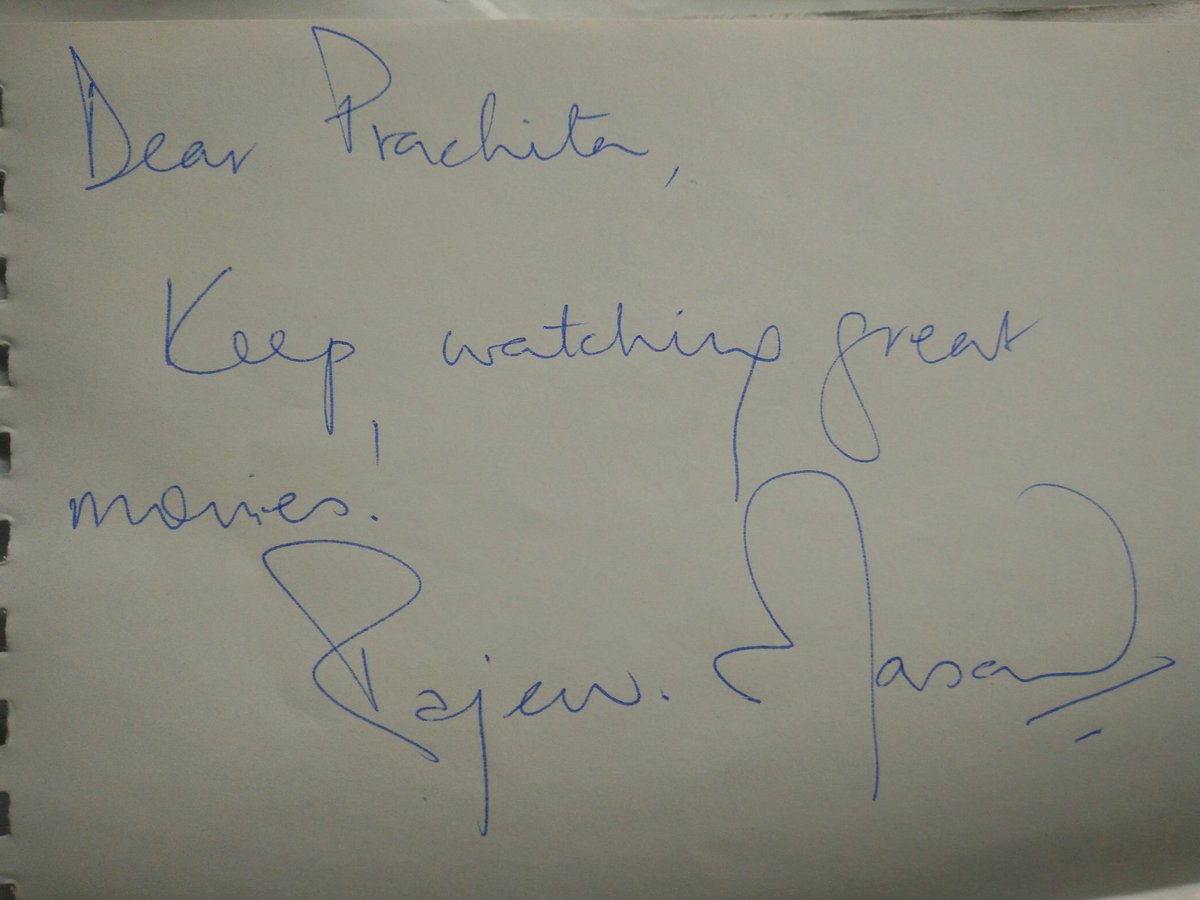 Dear Prachita,
Keep watching great
movies!
Rajeev. Masand